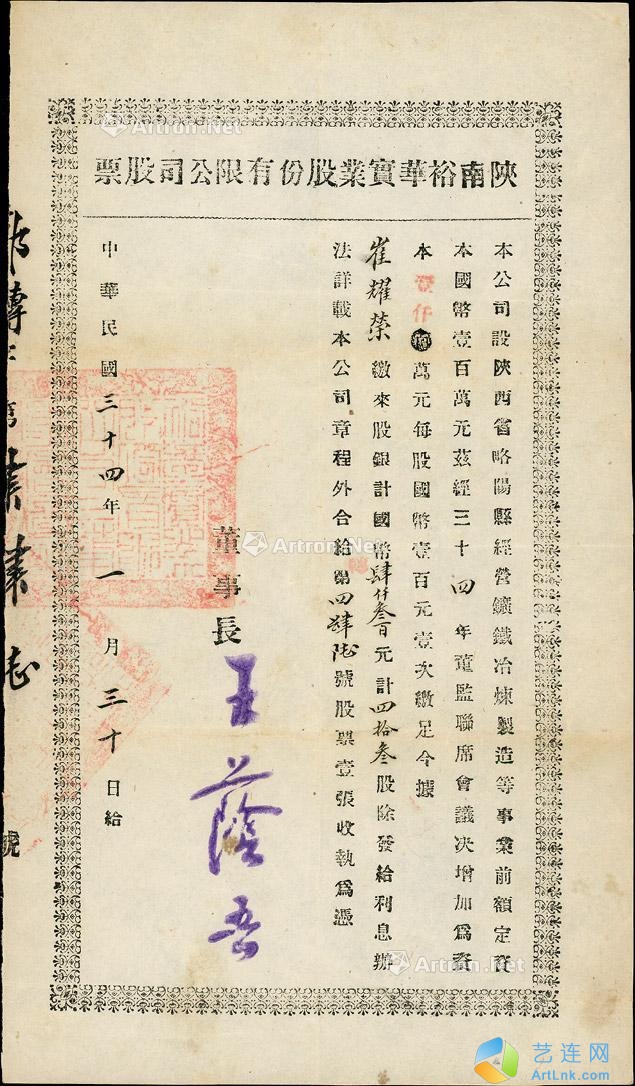 陝南裕華實業股份有限公司股票
本公司設陝西省略陽縣經營鑛鐵冶煉製造等事業前額定資
本國幣壹百萬元茲經三十四年董監聯席會議決增加爲資
本壹仟萬元每股國幣壹百元壹次繳足今據
崔耀榮繳來股銀計國幣肆仟叁百元計四拾叁股除發給利息辦
法詳載本公司章程外合給第四肆陸號股票壹張收執爲憑
董事長王蔭吾
中華民國三十四年一月三十日給
號
Artron.Net
Artron.Net
Artron.Net
艺连网
ArtLnk.com